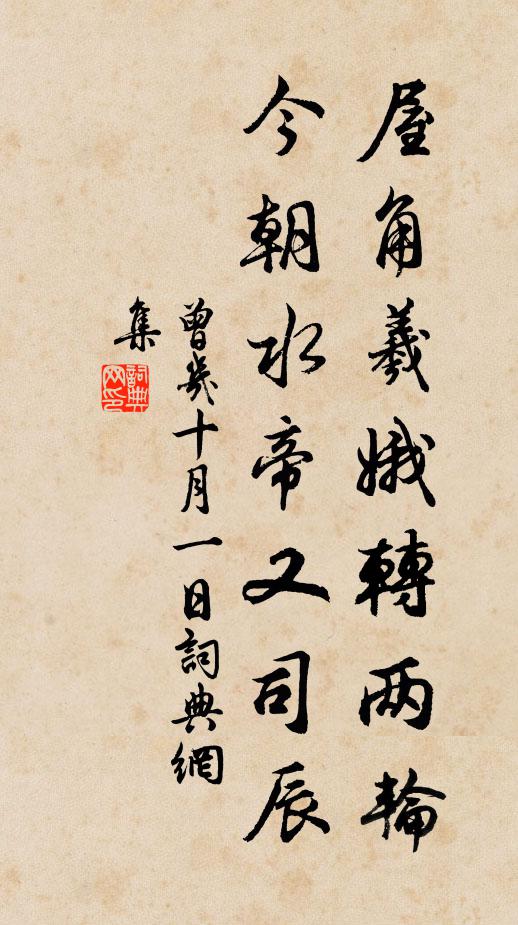 屋角羲娥轉两輪
今朝水帝又司辰
曾幾十月一日詞典網
集
詞典
网印